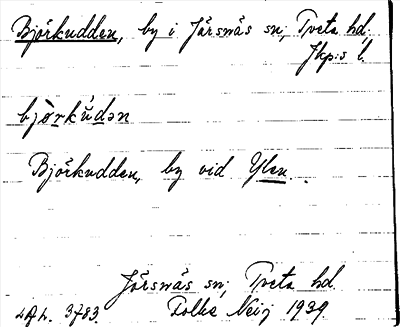 Björkudden, by i Järsnäs sn, Tveta hd,
Jkp:s l.
björkùdən
Björkudden, by vid Ylen.
Järsnäs sn, Tveta hd.
3783. Folke 1939.